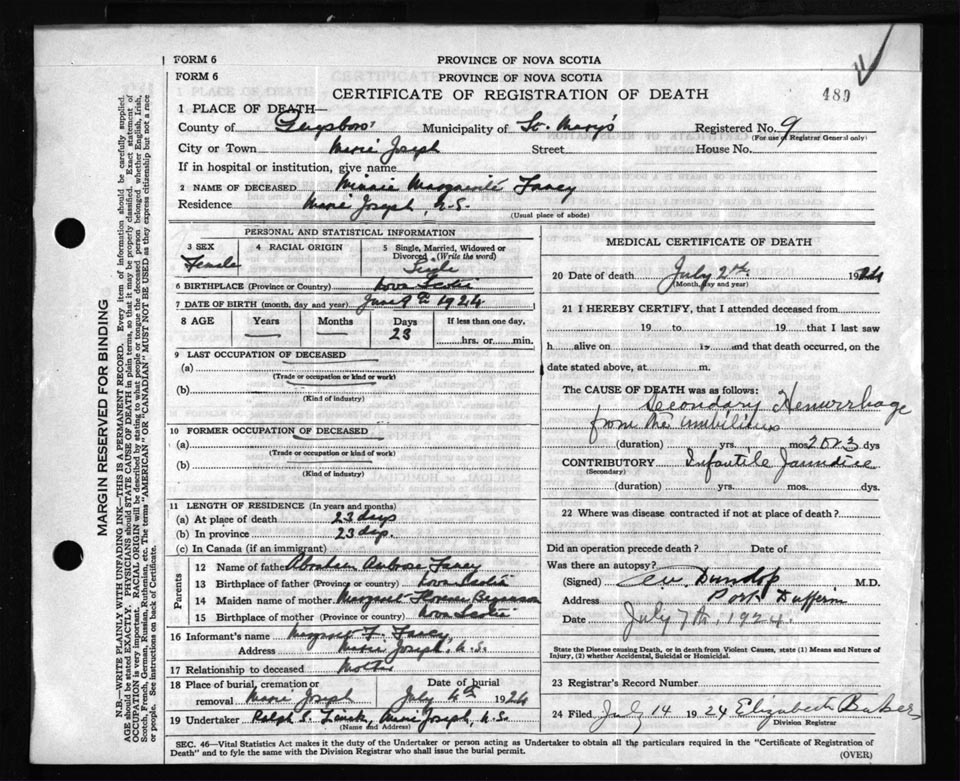 FORM 6 PROVINCE OF NOVA SCOTIA
FORM 6 PROVINCE OF NOVA SCOTIA
CERTIFICATE OF REGISTRATION OF DEATH
489
1 PLACE OF DEATH—
County of Municipality of St. Mary's Registered No. 9
(For use of Registrar General only)
City or Town Marie Joseph Street House No.
If in hospital or institution, give name
2 NAME OF DECEASED Minnie Marguerite
Residence Marie Joseph, N.S.
(Usual place of abode)
PERSONAL AND STATISTICAL INFORMATION
3 SEX 4 RACIAL ORIGIN 5 Single, Married, Widowed or
Divorced (Write the word)
Female Single
6 BIRTHPLACE (Province or Country) Nova Scotia
7 DATE OF BIRTH (month, day and year) June 9th 1924
8 AGE Years Months Days If less than one day,
23 hrs. or min.
9 LAST OCCUPATION OF DECEASED
(a)
(Trade or occupation or kind or work)
(b)
(Kind of industry)
10 FORMER OCCUPATION OF DECEASED
(a)
(Trade or occupation or kind of work)
(b)
(Kind of industry)
11 LENGTH OF RESIDENCE (In years and months)
(a) At place of death 23 days
(b) In province 23 days.
(c) In Canada (if an immigrant)
Parents
12 Name of father Abraham Ambrose
13 Birthplace of father (Province or country) Nova Scotia
14 Maiden name of mother Margaret Florence
15 Birthplace of mother (Province or country) Nova Scotia
16 Informant's name Margaret F.
Address Marie Joseph, N.S.
17 Relationship to deceased Mother
18 Place of burial, cremation or Date of burial
removal Marie Joseph July 4th 1924
19 Undertaker Ralph S. Marie Joseph, N.S.
(Name and Address)
MEDICAL CERTIFICATE OF DEATH
20 Date of death July 2nd. 1924
(Month, day and year)
21 I HEREBY CERTIFY, that I attended deceased from
19 to 19 that I last saw
h alive on 19 and that death occurred, on the
date stated above, at m.
The CAUSE OF DEATH was as follows:
Secondary Hemurrhage
from the umbilicus
(duration) yrs. mos. 2 or 3 dys
CONTRIBUTORY Infantile Jaundice
(Secondary)
(duration) yrs. mos. dys.
22 Where was disease contracted if not at place of death?
Did an operation precede death? Date of
Was there an autopsy?
(Signed) Dunlop M.D.
Address Port Dufferin
Date July 7th, 1924.
State the Disease causing Death, or in death from Violent Causes, state (1) Means and Nature of
Injury, (2) whether Accidental, Suicidal or Homicidal.
23 Registrar's Record Number
24 Filed July 14 1924 Elizabeth Baker
Division Registrar
SEC. 46—Vital Statistics Act makes it the duty of the Undertaker or person acting as Undertaker to obtain all the particulars required in the "Certificate of Registration of
Death" and to fyle the same with the Division Registrar who shall issue the burial permit. (OVER)
MARGIN RESERVED FOR BINDING
N.B.—WRITE PLAINLY WITH UNFADING INK—THIS IS A PERMANENT RECORD. Every item of information should be carefully supplied.
AGE should be stated EXACTLY. PHYSICIANS should STATE CAUSE OF DEATH in plain terms, so that it may be properly classified. Exact statement of
OCCUPATION is very important. RACIAL ORIGIN will be described by stating to what people or tongue the deceased person belonged whether English, Irish,
Scotch, French, German, Russian, Ruthenian, etc. The terms "AMERICAN" OR "CANADIAN" MUST NOT BE USED as they express citizenship but not a race
or people. See instructions on back of Certificate.